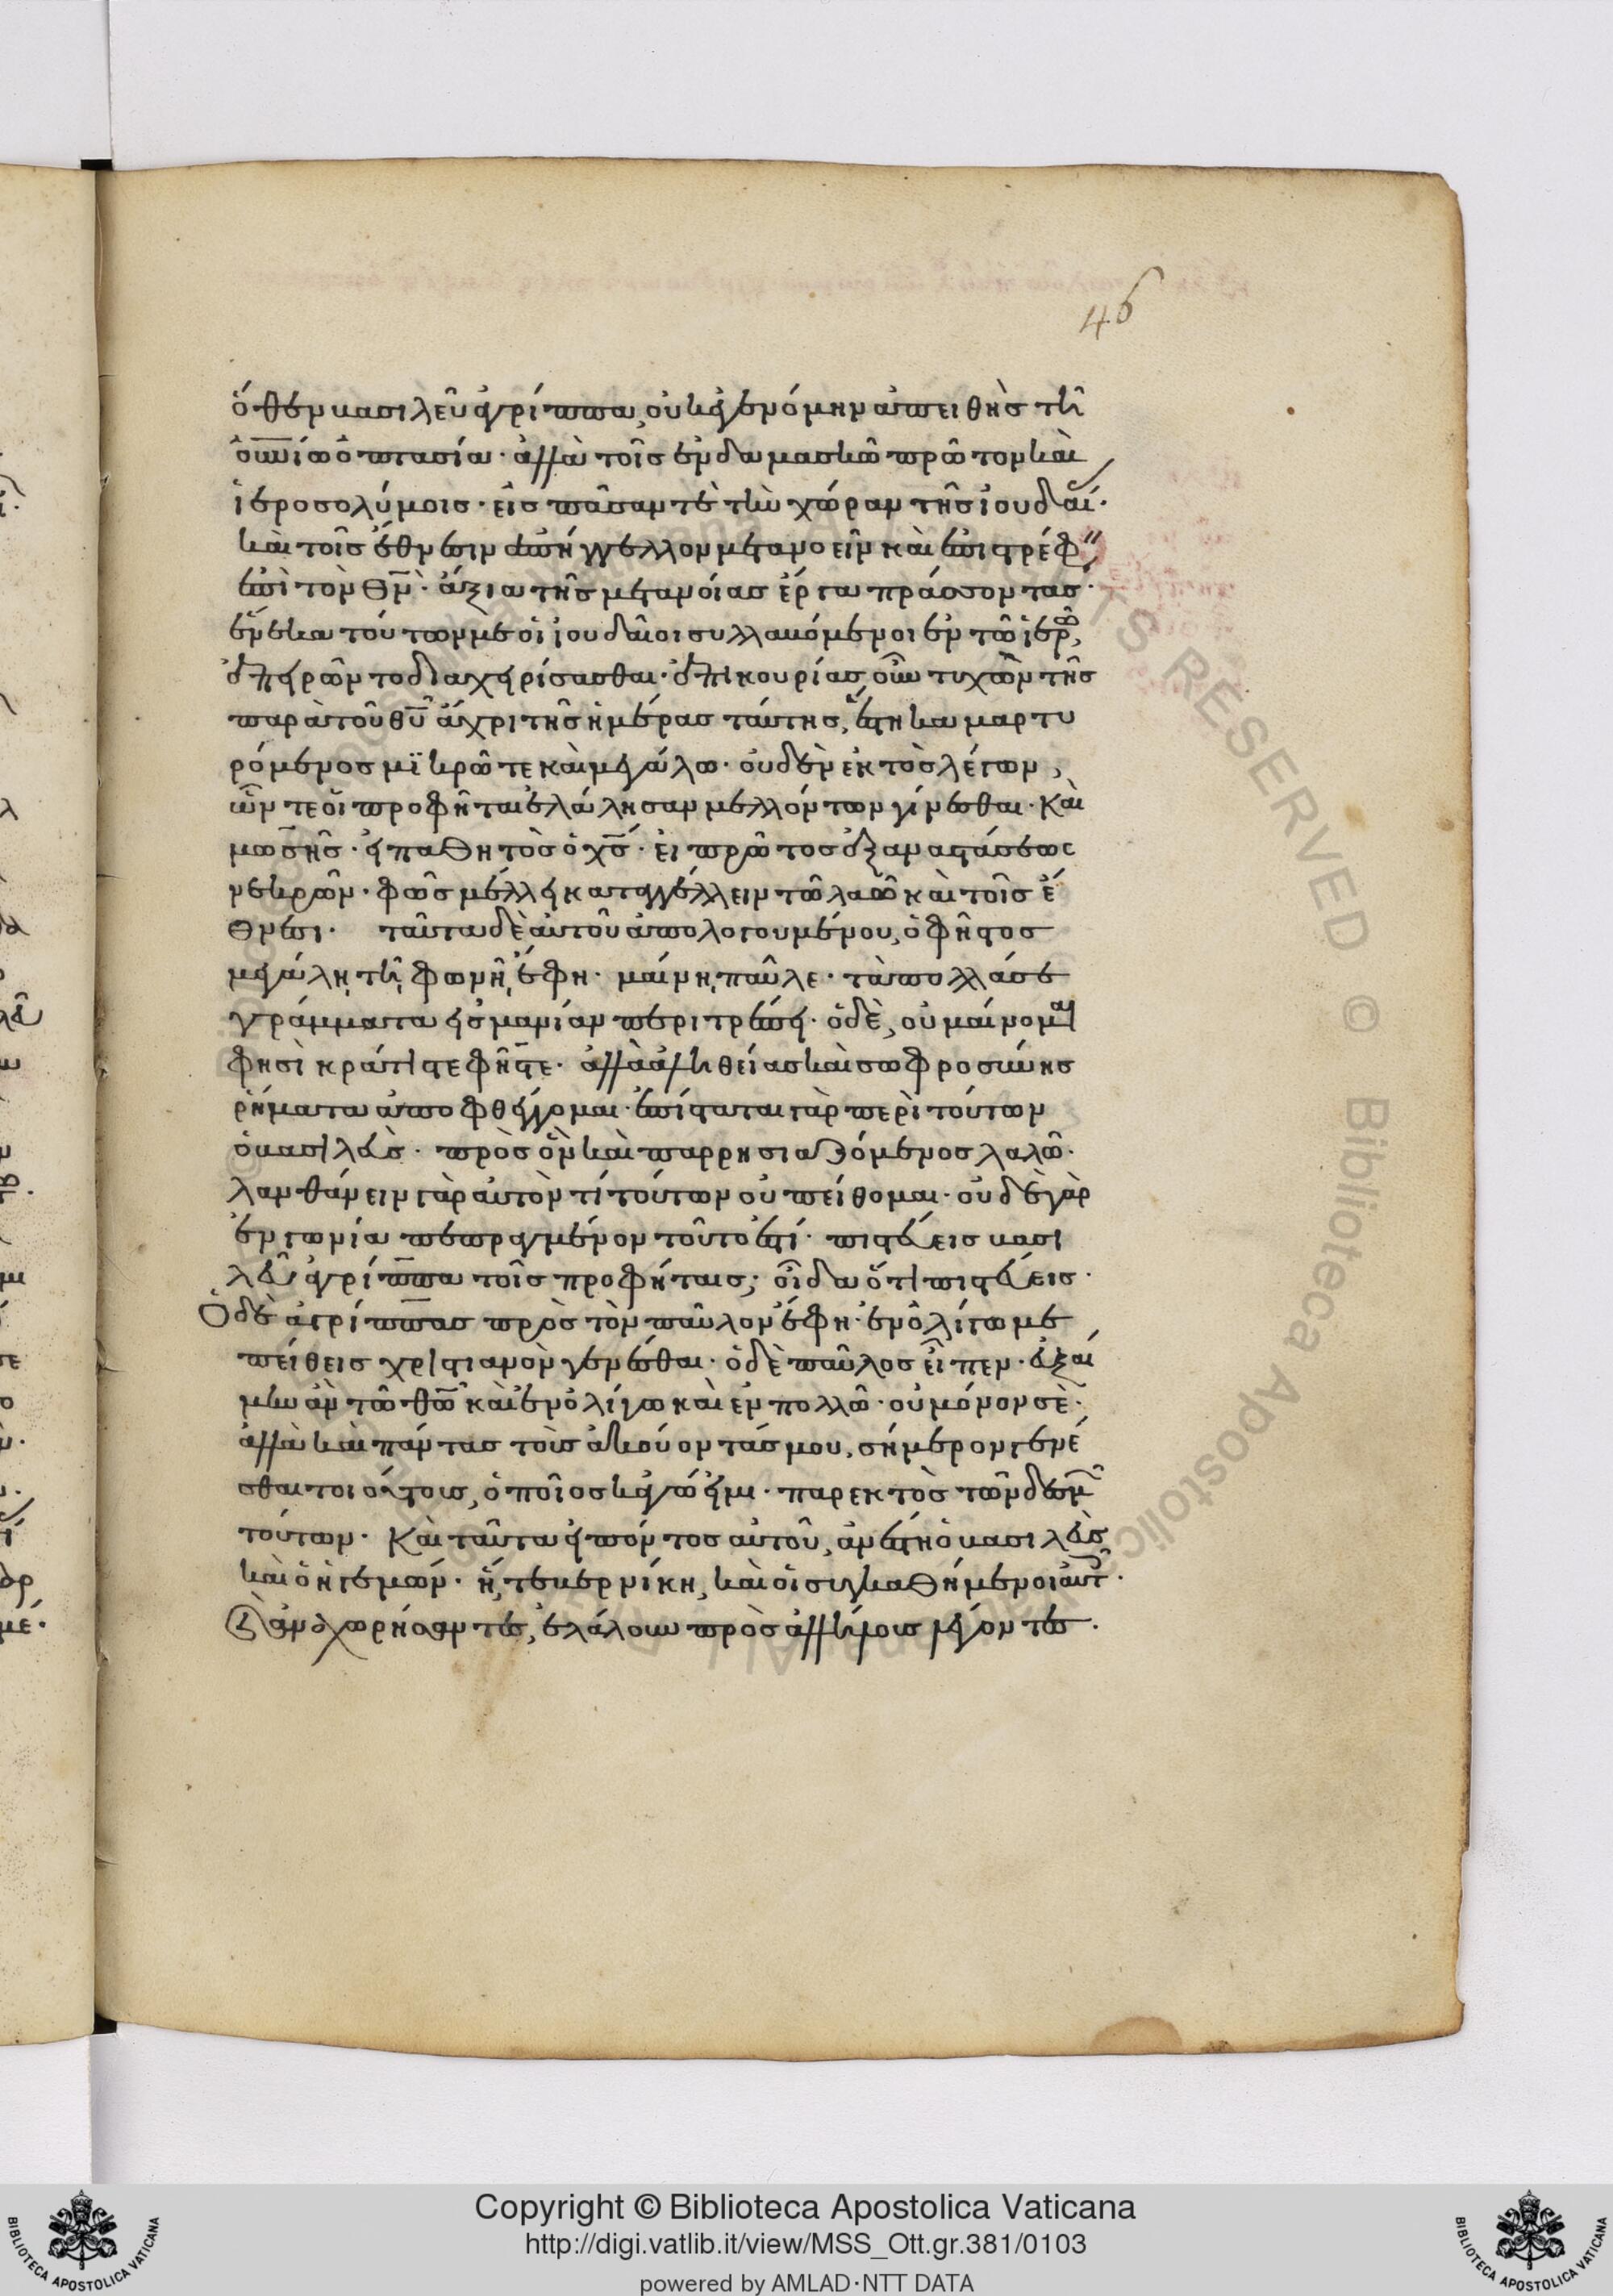 46
ὅθεν βασιλεῦ ἀγρίππα, οὐκ ἐγενόμην ἀπειθὴς τῆ
οὐνίω ὀπτασία· ἀλλὰ τοῖς ἐν δαμασκῶ πρῶτον καὶ
ἱεροσολύμοις· εἰς πᾶσάν τε τὴν χώραν τῆς ἰουδαί·
καὶ τοῖς ἔθνεσιν ἀπήγγελλον μετανοεῖν καὶ ἐπιστρέφ
ἐπὶ τὸν θν· ἄξια τῆς μετανοίας ἔργα πράσσοντας·
ἕνεκα τούτων με οἱ ἰουδαῖοι συλλαβόμενοι ἐν τῶ ἱερῶ,
ἐπειρῶντο διαχειρίσασθαι· ἐπικουρίας οὖν τυχὼν τῆς
παρὰ τοῦ θυ ἄχρι τῆς ἡμέρας ταύτης, ἕστηκα μαρτυ
ρόμενος μϊκρῶ τε καὶ μεγάλω· οὐδὲν ἐκτὸς λέγων,
ὧν τε οἱ προφῆται ἐλάλησαν μελλόντων γίνεσθαι· καὶ
μωσῆς· εἰ παθητὸς ὁ χς· εἰ πρῶτος ἐξ ἀναστάσεως
νεκρῶν· φῶς μέλλει καταγγέλλειν τῶ λαῶ καὶ τοῖς ἔ
θνεσι· ταῦτα δὲ αὐτοῦ ἀπολογουμένου, ὁ φῆστος
μεγάλη τῆ φωνῆ ἔφη· μαίνη παῦλε· τὰ πολλά σε
γράμματα εἰς μανίαν περιτρέπει· ὁ δὲ, οὐ μαίνομαι
φησὶ κράτιστε φῆστε· ἀλλὰ ἀληθείας καὶ σωφροσύνης
ῥήματα ἀποφθέγγομαι· ἐπίσταται γὰρ περὶ τούτων
ὁ βασιλεὺς· πρὸς ὃν καὶ παρρησιαζόμενος λαλῶ·
λανθάνειν γὰρ αὐτὸν τί τούτων οὐ πείθομαι· οὐδὲ γὰρ
ἐν γωνία πεπραγμένον τοῦτο ἐστί· πιστεύεις βασι
λεῦ ἀγρίππα τοῖς προφήταις; οἶδα ὅτι πιστεύεις·
Ὁ δὲ ἀγρίππας πρὸς τὸν παῦλον ἔφη· ἐν ὀλίγω με
πείθεις χριστιανὸν γενέσθαι· ὁ δὲ παῦλος εἶπεν· εὐξαί
μην ἂν τῶ θῶ καὶ ἐν ὀλίγω καὶ ἐν πολλῶ· οὐ μόνον σὲ·
ἀλλὰ καὶ πάντας τοὺς ἀκούοντάς μου, σήμερον γενέ
σθαι τοιούτους, ὁποῖος κἀγώ εἰμι· παρεκτὸς τῶν δεσμ
τούτων· Καὶ ταῦτα εἰπόντος αὐτοῦ, ἀνέστη ὁ βασιλεὺς
καὶ ὁ ἡγεμών· ἥ, τε βερνίκη, καὶ οἱ συγκαθήμενοι αὐτ·
Καὶ ἀναχωρήσαντες, ἐλάλουν πρὸς ἀλλήλους λέγοντες·
Copyright © Biblioteca Apostolica Vaticana
http://digi.vatlib.it/view/MSS_Ott.gr.381/0103
powered by AMLAD·NTT DATA